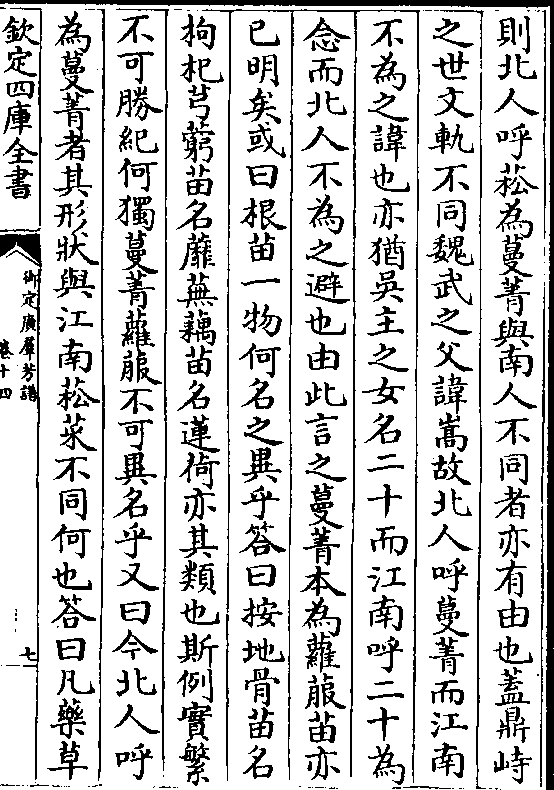 則北人呼菘為蔓菁與南人不同者亦有由也蓋鼎峙
之世文軌不同魏武之父諱嵩故北人呼蔓菁而江南
不為之諱也亦猶吳主之女名二十而江南呼二十為
念而北人不為之避也由此言之蔓菁本為蘿菔苗亦
已明矣或曰根苗一物何名之異乎答曰按地骨苗名
拘杞芎藭苗名蘼蕪藕苗名蓮荷亦其類也斯例實繁
不可勝紀何獨蔓菁蘿菔不可異名乎又曰今北人呼
為蔓菁者其形狀與江南菘菜不同何也答曰凡藥草
欽定四庫全書
御定廣羣芳譜
卷十四
七